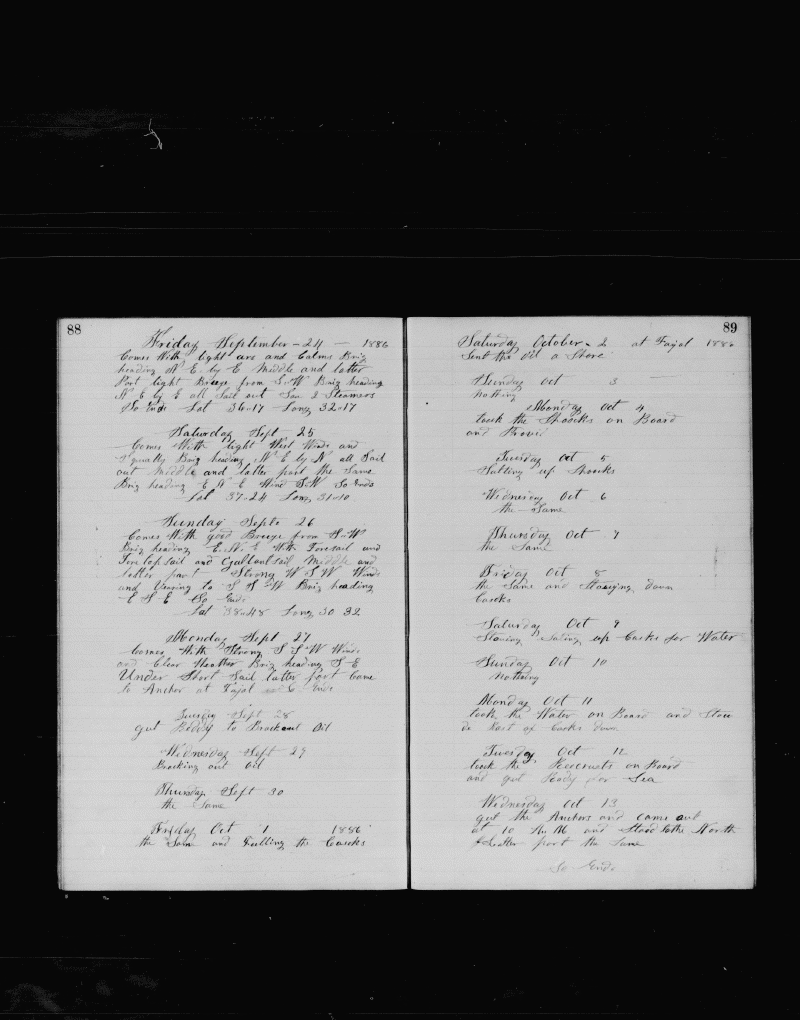 88
Friday September - 24 - 1886
Comes With light airs and Calms Brig
heading N E. by E Middle and latter
Part light Breeze from S.W Brig heading
N E by E all Sail out Saw 2 Steamers
So Ends Lat 36-17 Long 32-17
Saturday Sept 25
Comes With light West Winds and
Squally Brig heading N E by N all Sail
out Middle and latter part the Same
Brig heading E N E Wind S.W So Ends
Lat 37-24 Long 31-10
Sunday Sept 26
Comes With good Breeze from S.W
Brig heading E.N.E With Foresail and
Fore topsail and Gallantsail Middle and
latter part Strong W S W Winds
and Varying to S S W Brig heading
E S E So Ends
Lat 38-48 Long 30 32
Monday Sept 27
Comes With Strong S S W Winds
and Clear Weather Brig heading S E
Under Short Sail latter part Came
to Anchor at Fajal so Ends
Tuesday Sept 28
got Ready to Brackout Oil
Wednesday Sept 29
Bracking out Oil
Thursday Sept 30
the Same
Friday Oct 1 1886
the Same and Filling the Cascks
89
Saturday October 2 at Fajal 1886
Sent the Oil a Shore
Sunday Oct 3
Nothing
Monday Oct 4
took the Shoocks on Board
and
Tuesday Oct 5
Setting up Shoocks
Wednesday Oct 6
the Same
Thursday Oct 7
the Same
Friday Oct 8
the Same and Stowing down
Cascks
Saturday Oct 9
Stowing Seting up Casks for Water
Sunday Oct 10
Nothing
Monday Oct 11
took the Water on Board and Stow
de Rest of Casks down
Tuesday Oct 12
took the Reecruets on Board
and got Ready for Sea
Wednesday Oct 13
got the Anchors and came out
at 10 A M and Stood to the North
Latter part the Same
So Ends